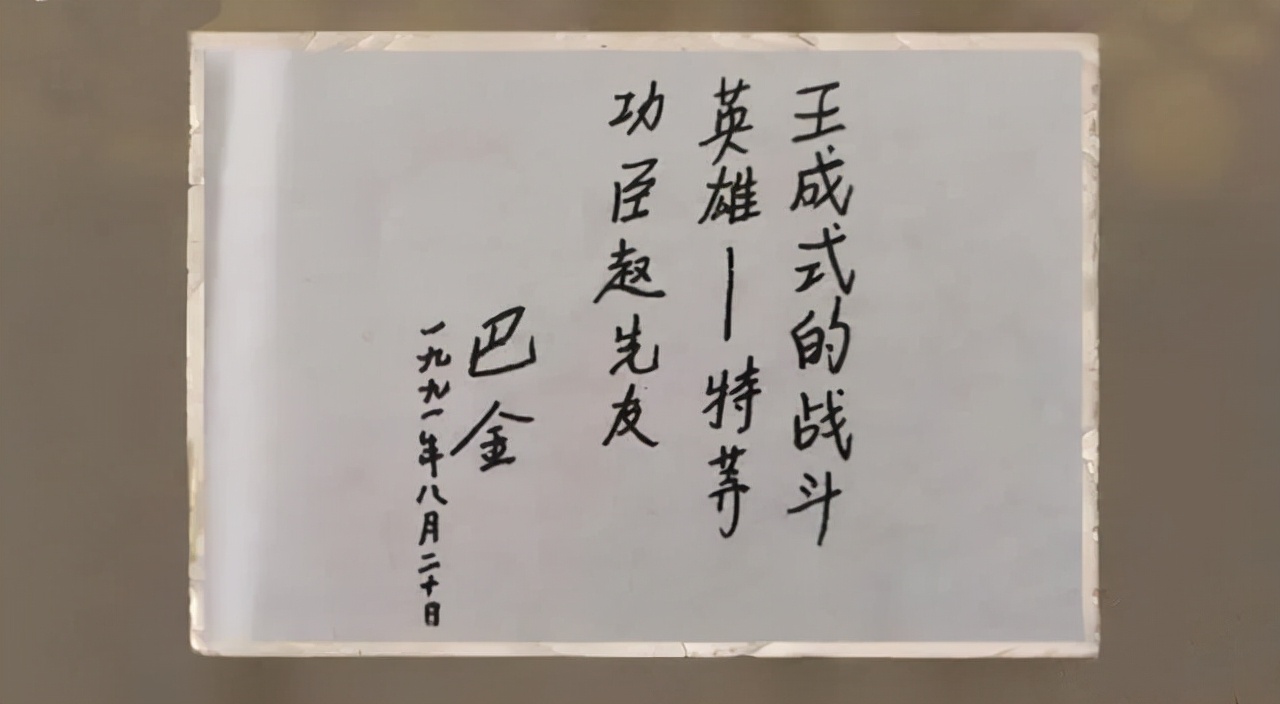 王成式的战斗
英雄—特等
功臣赵先友
巴金
一九九一年八月二十日